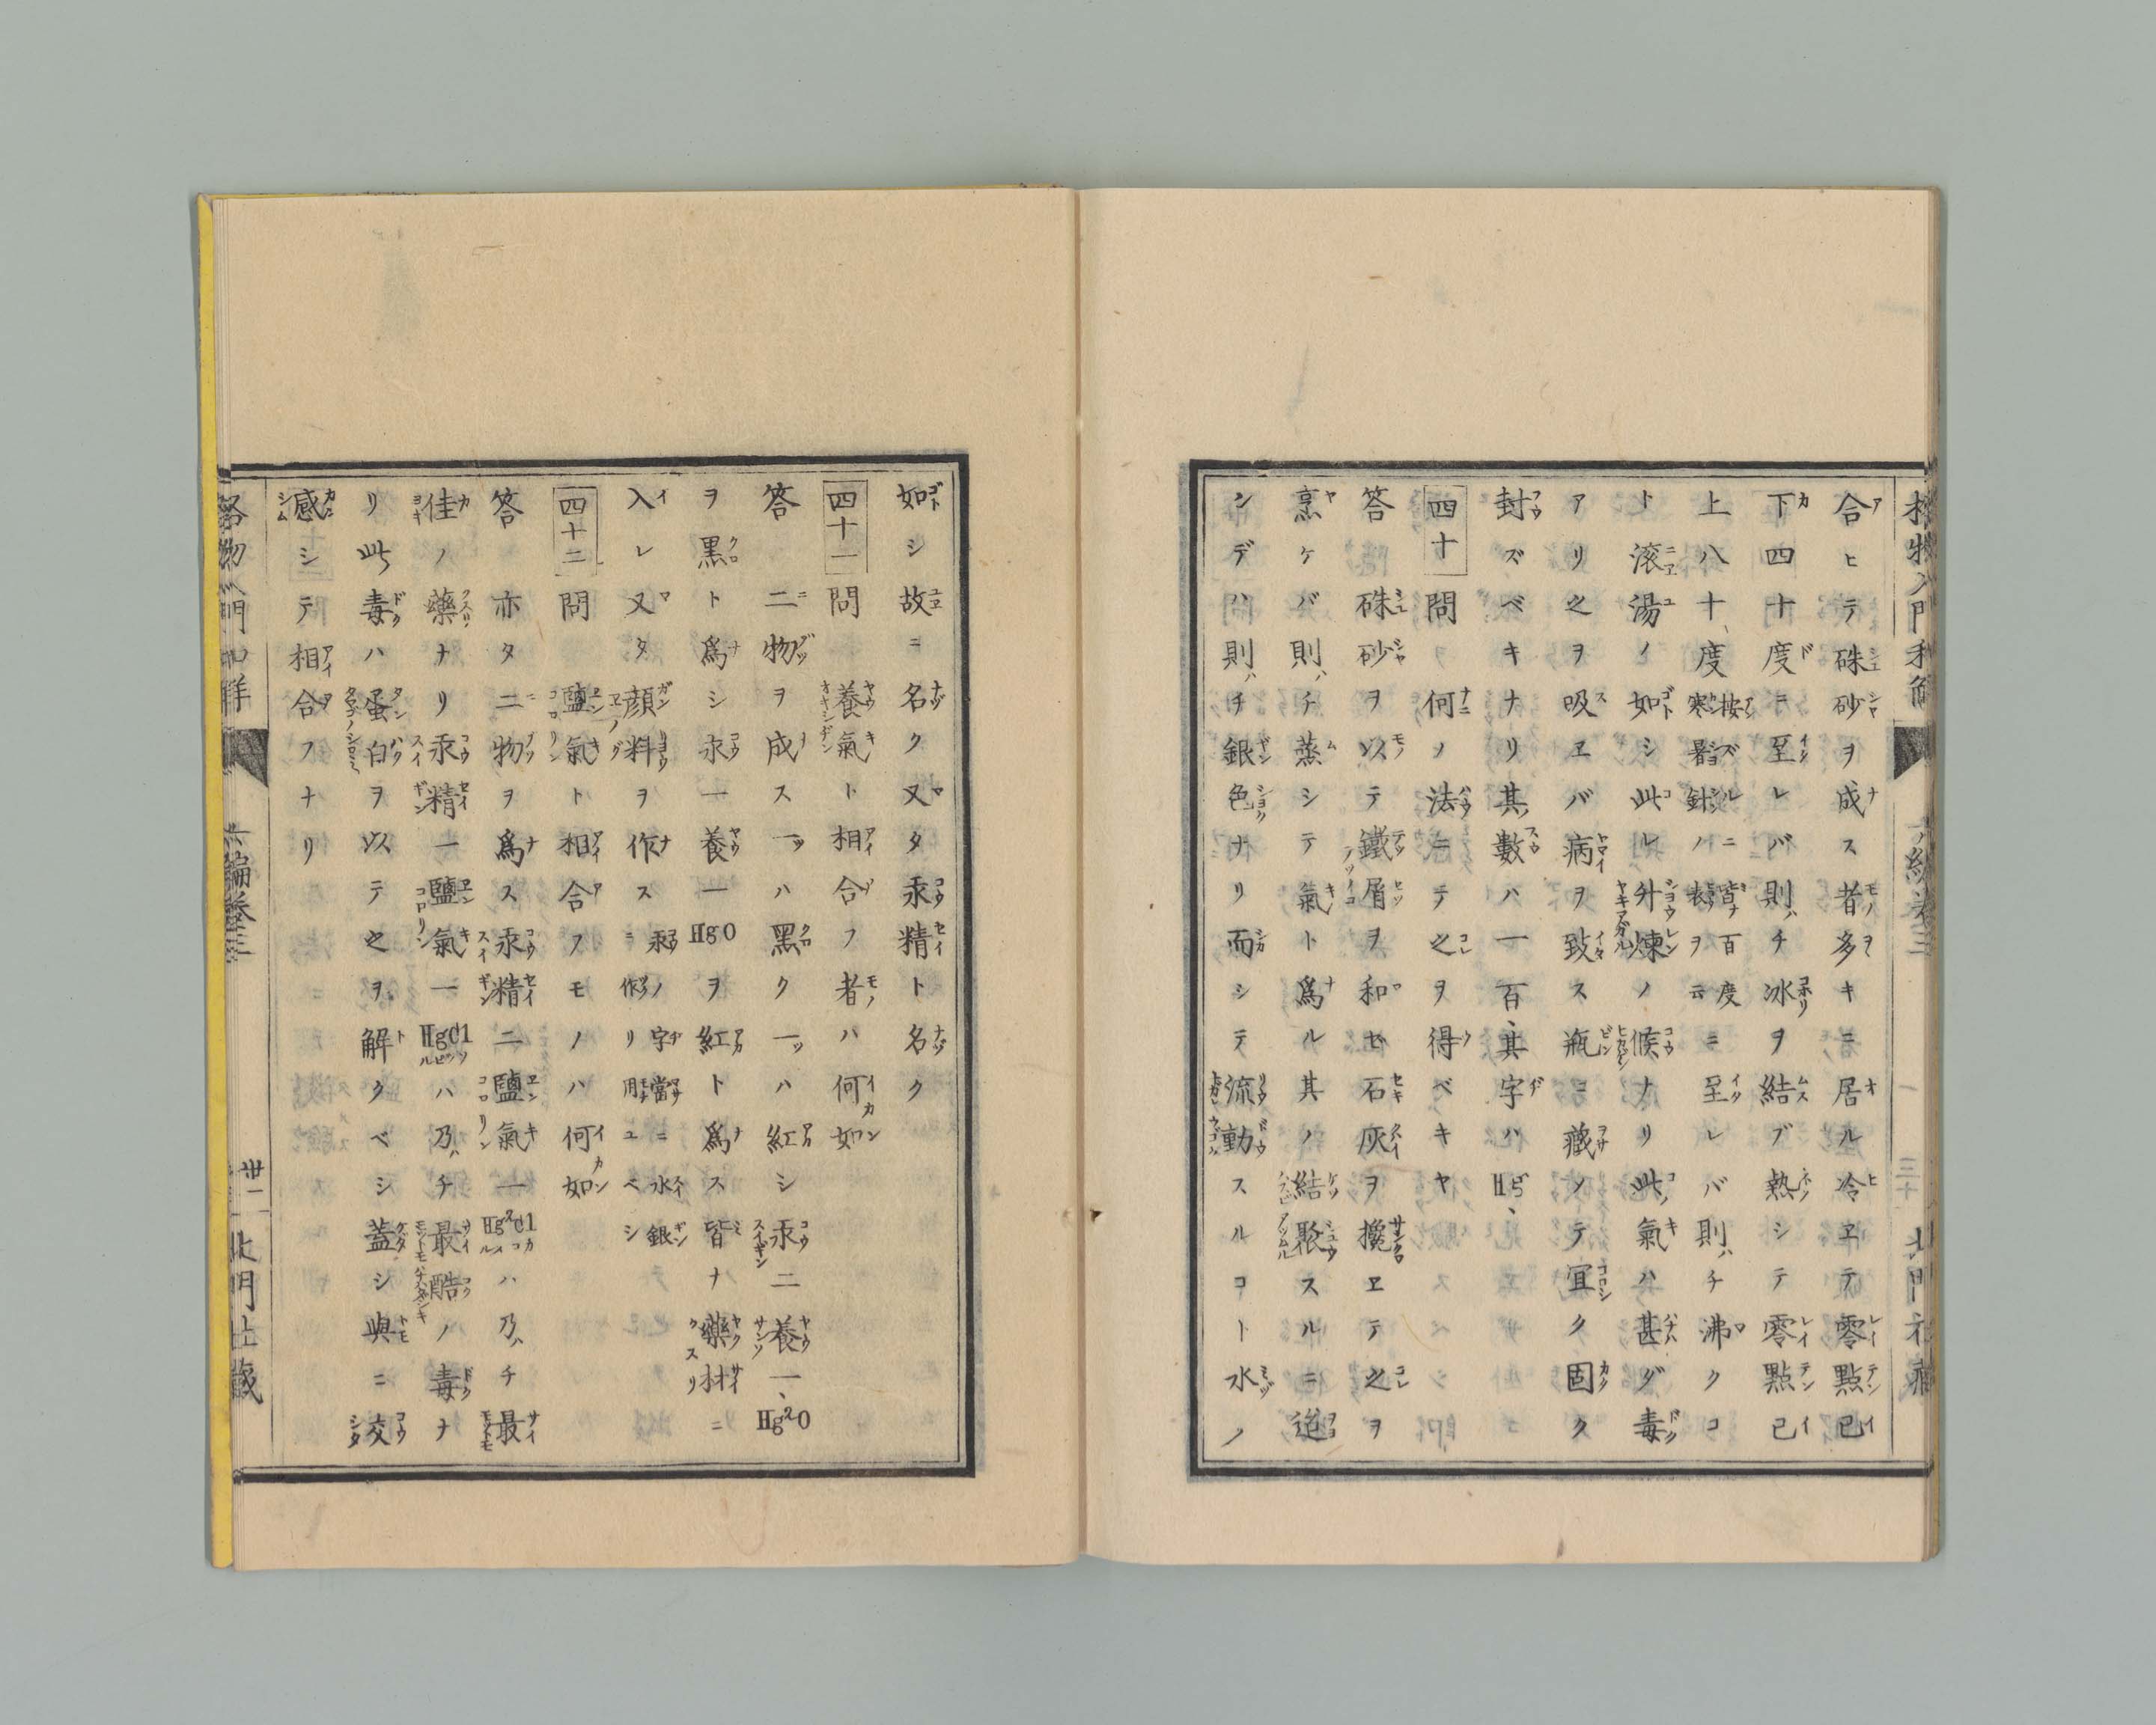 合ヒテ硃砂ヲ成ス者多キニ居ル冷ヱテ零點已
下四十度ニ至レバ則チ冰ヲ結ブ熱シテ零點已
上八十度按ズルニ皆百度寒暑針ノ表ヲ云ニ至レバ則チ沸クコ
ト滾湯ノ如シ此レ升煉ノ候ナリ此氣ハ甚ダ毒
アリ之ヲ吸ヱバ病ヲ致ス瓶ニ藏ノテ宜ク固ク
封ズベキナリ其數ハ一百、其字ハHg、
四十問何ノ法ニテ之ヲ得ベキヤ
答硃砂ヲ以テ鐵屑ヲ和セ石灰ヲ攙ヱテ之ヲ
烹ケバ則チ蒸シテ氣ト爲ル其ノ結聚スルニ迨
ンデハ則チ銀色ナリ而シテ流動スルコト水ノ
如シ故ニ名ク又タ汞精ト名ク
四十一問養氣ト相合フ者ハ何如
答二物ヲ成ス一ハ黑ク一ハ紅シ汞二養一、Hg²O
ヲ黑ト爲シ汞一養一HgOヲ紅ト爲ス皆ナ藥材ニ
入レ又タ顔料ヲ作ス汞ノ字當ニ水銀ニ作リ用ユベシ
四十二問鹽氣ト相合フモノハ何如
答亦タ二物ヲ爲ス汞精二鹽氣一Hg²Clハ乃チ最
佳ノ藥ナリ汞精一鹽氣一HgClハ乃チ最酷ノ毒ナ
リ此毒ハ蛋白ヲ以テ之ヲ解クベシ蓋シ與ニ交
感シテ相合フナリ
格物入門和解
六編卷三
卅二
北門社藏